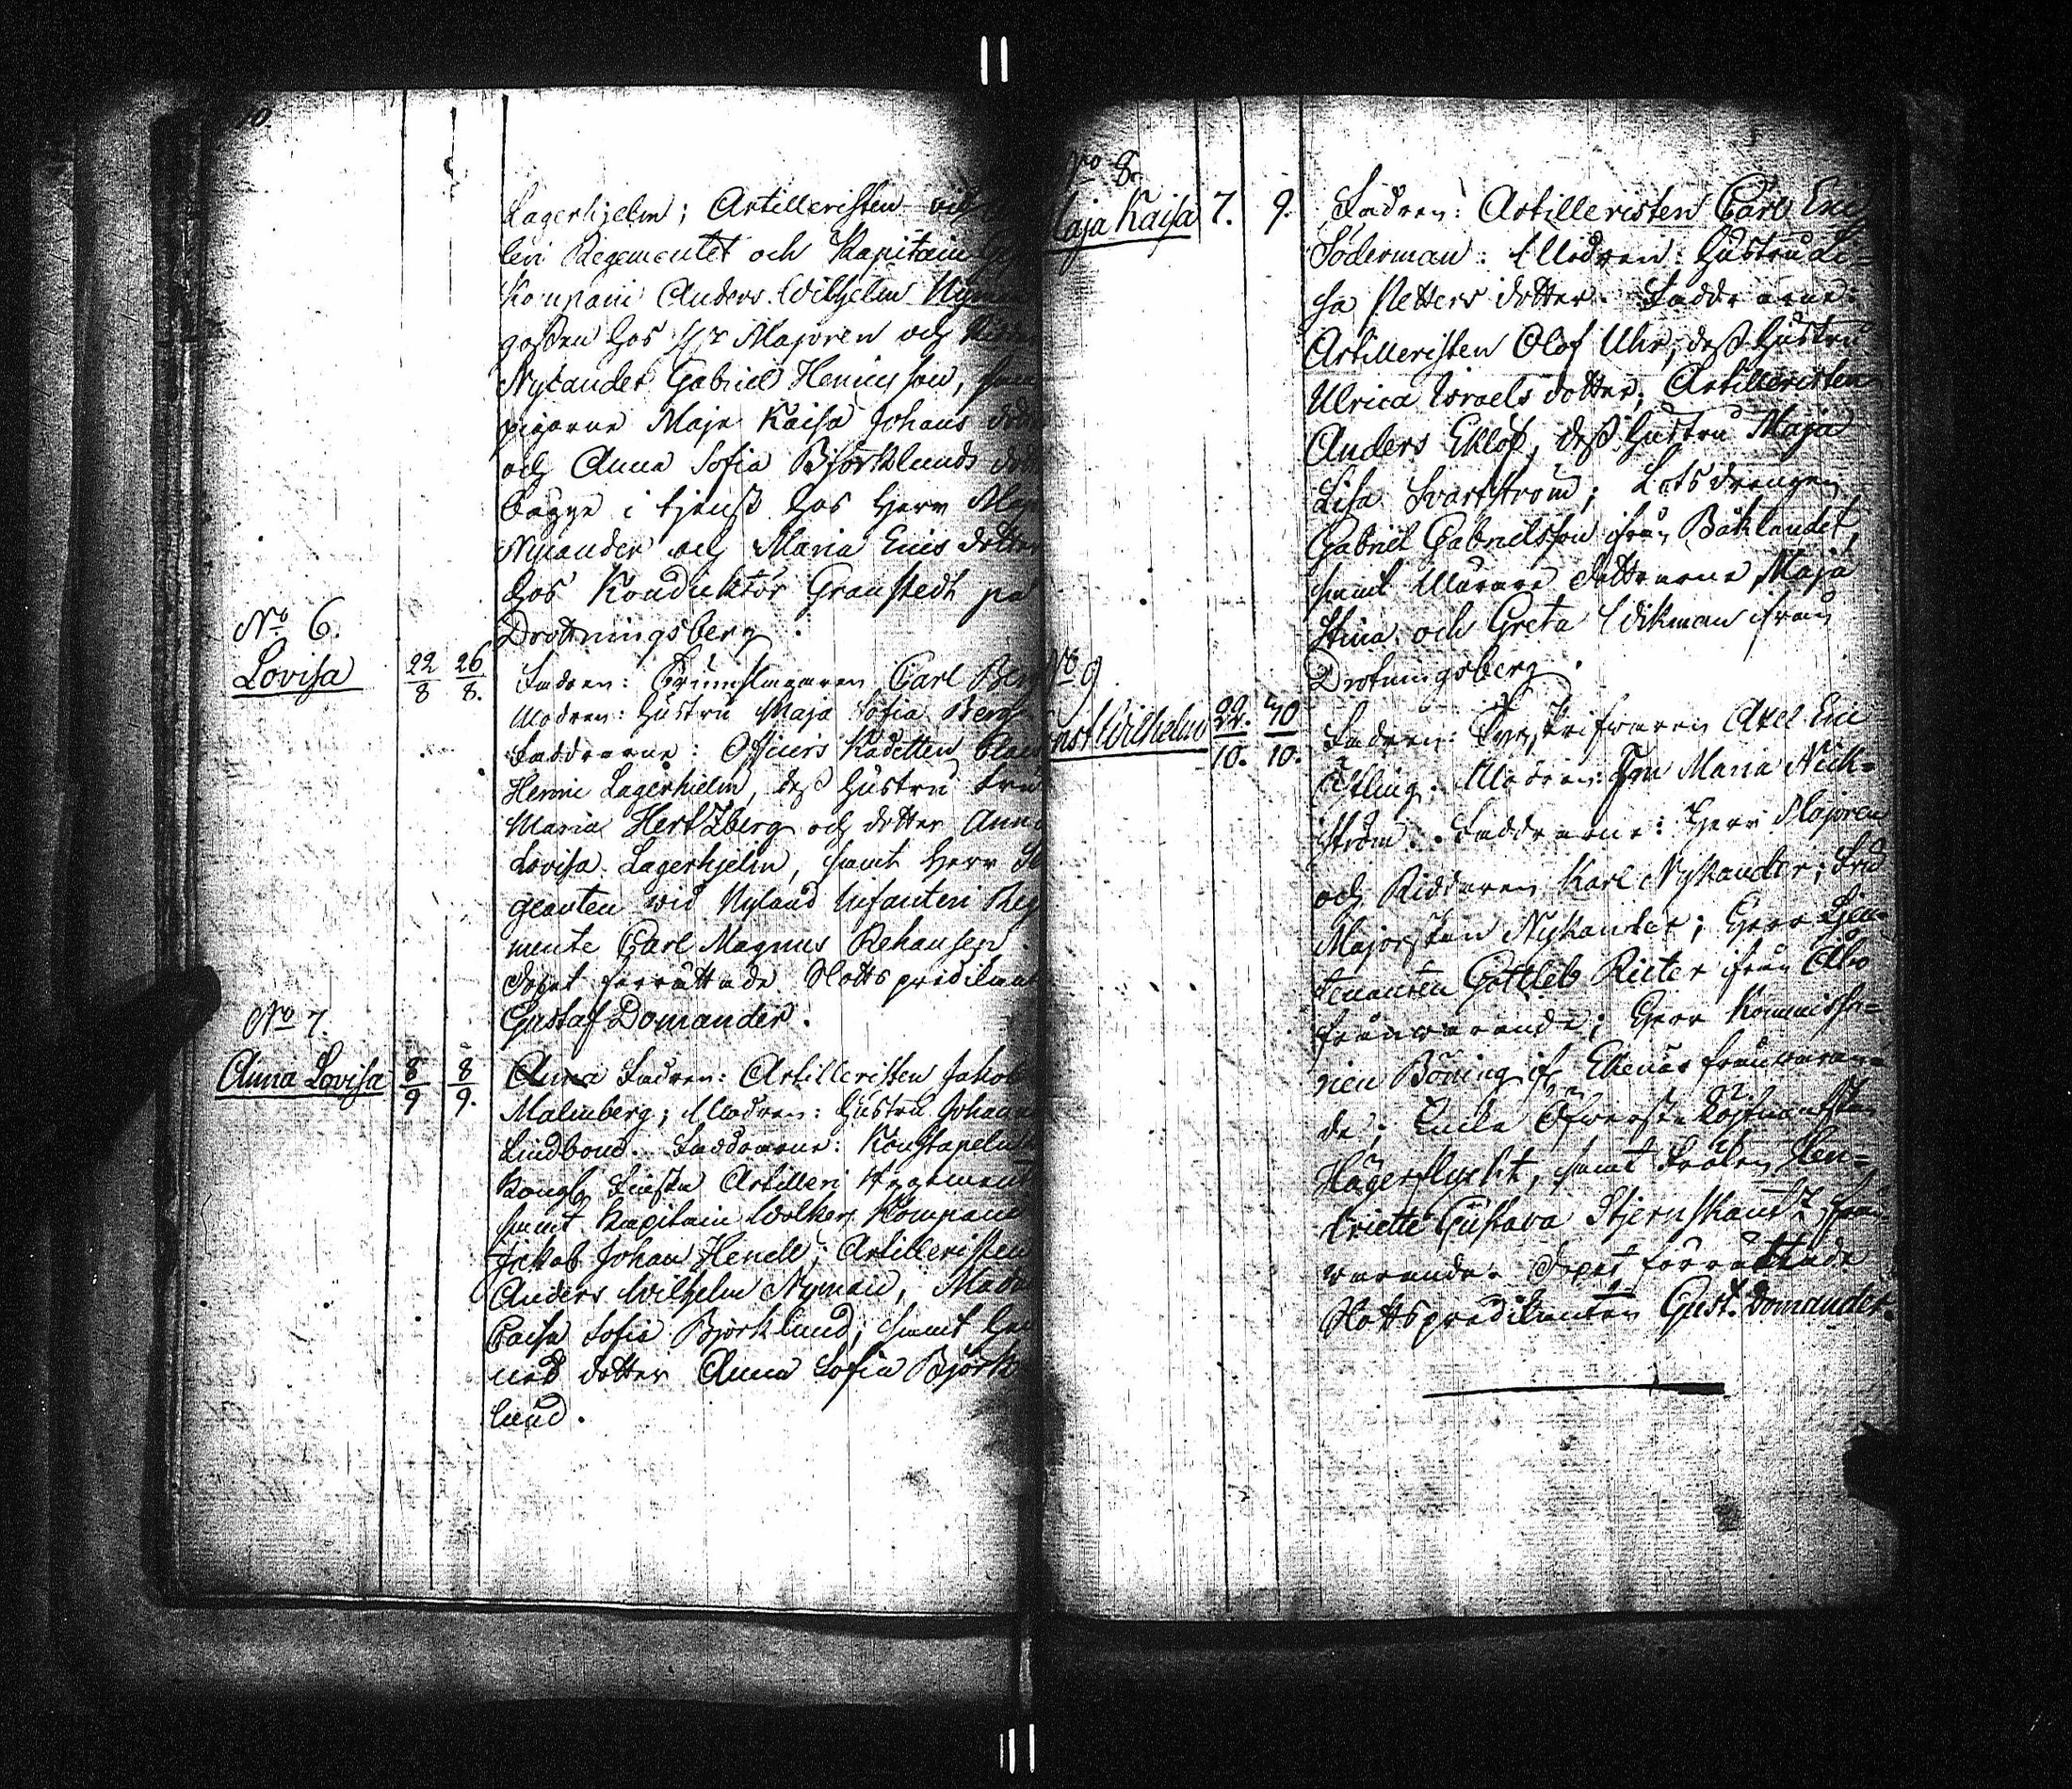 10.
Lagerhjelm; Artilleristen vid
leri Regementet och Kapitain
Kompani Anders Wilhelm Nyman
gossen hos Hr Majoren och
Nykander Gabriel Henricsson,
pigorne Maja Kaisa Johans
och Anna Sofia Björklunds
bägge i tjenst hos Herr
Nykander och Maria Erics dotter
hos Konduktör Granstedt på
Drottningsberg.
No 6.
Lovisa 22/8 26/8.
Fadren: Carl Berg
Modren: Hustru Maja Sofia Berg
Faddrarne: Officers Kadetten Claes
Henric Lagerhielm, dess Hustru Fru
Maria Hertzberg och dotter Anna
Lovisa Lagerhjelm, samt Herr
geanten wid Nyland Infanteri Reg
mente Carl Magnus Rehausen.
Dopet förrättade Slottspredikant
Gustaf Domander.
No 7.
Anna Lovisa 8/9 8/9.
Fadren: Artilleristen Jakob
Malmberg; Modren: Hustru Johan
Lindbom. Faddrarne: Konstapeln
Kongl. Finska Artilleri Regement
samt Kapitain Wolkers Kompani
Jakob Johan Henell; Artilleristen
Anders Wilhelm Nyman;
Caisa Sofia Björklund; samt
nes dotter Anna Sofia Björk
lund.
No 8.
Maja Kaisa 7. 9.
Fadren: Artilleristen Carl Eric
Söderman. Modren: Hustru Li=
sa Petters dotter. Faddrarne:
Artilleristen Olof Uhr, dess Hustru
Ulrica Israels dotter; Artilleristen
Anders Eklöf, dess Hustru Maja
Lisa Svartström; Lotsdrengen
Gabriel Gabrielsson ifrån Båklandet,
samt Murare döttrarne Maja
Stina och Greta Wikman ifrån
Drotningsberg.
No 9
nst Wilhelm 22./10. 30/10.
Fadren: Axel Eric
Modren: Fru Maria Nick=
ström. Faddrarne: Herr Majoren
och Riddaren Karl Nykander; Fru
Majorskan Nykander; Herr Lieu=
tenanten Gottlieb Rieter ifrån Åbo
frånvarande; Herr Kommissa=
rien Böning if. Ekenäs frånvaran=
de; Enke Öfwerste
Hägerflycht, samt Fröken Hen=
riette Gustava Stjernskantz från=
varande. Dopet förrättade
Slottspredikanten Gust. Domander.